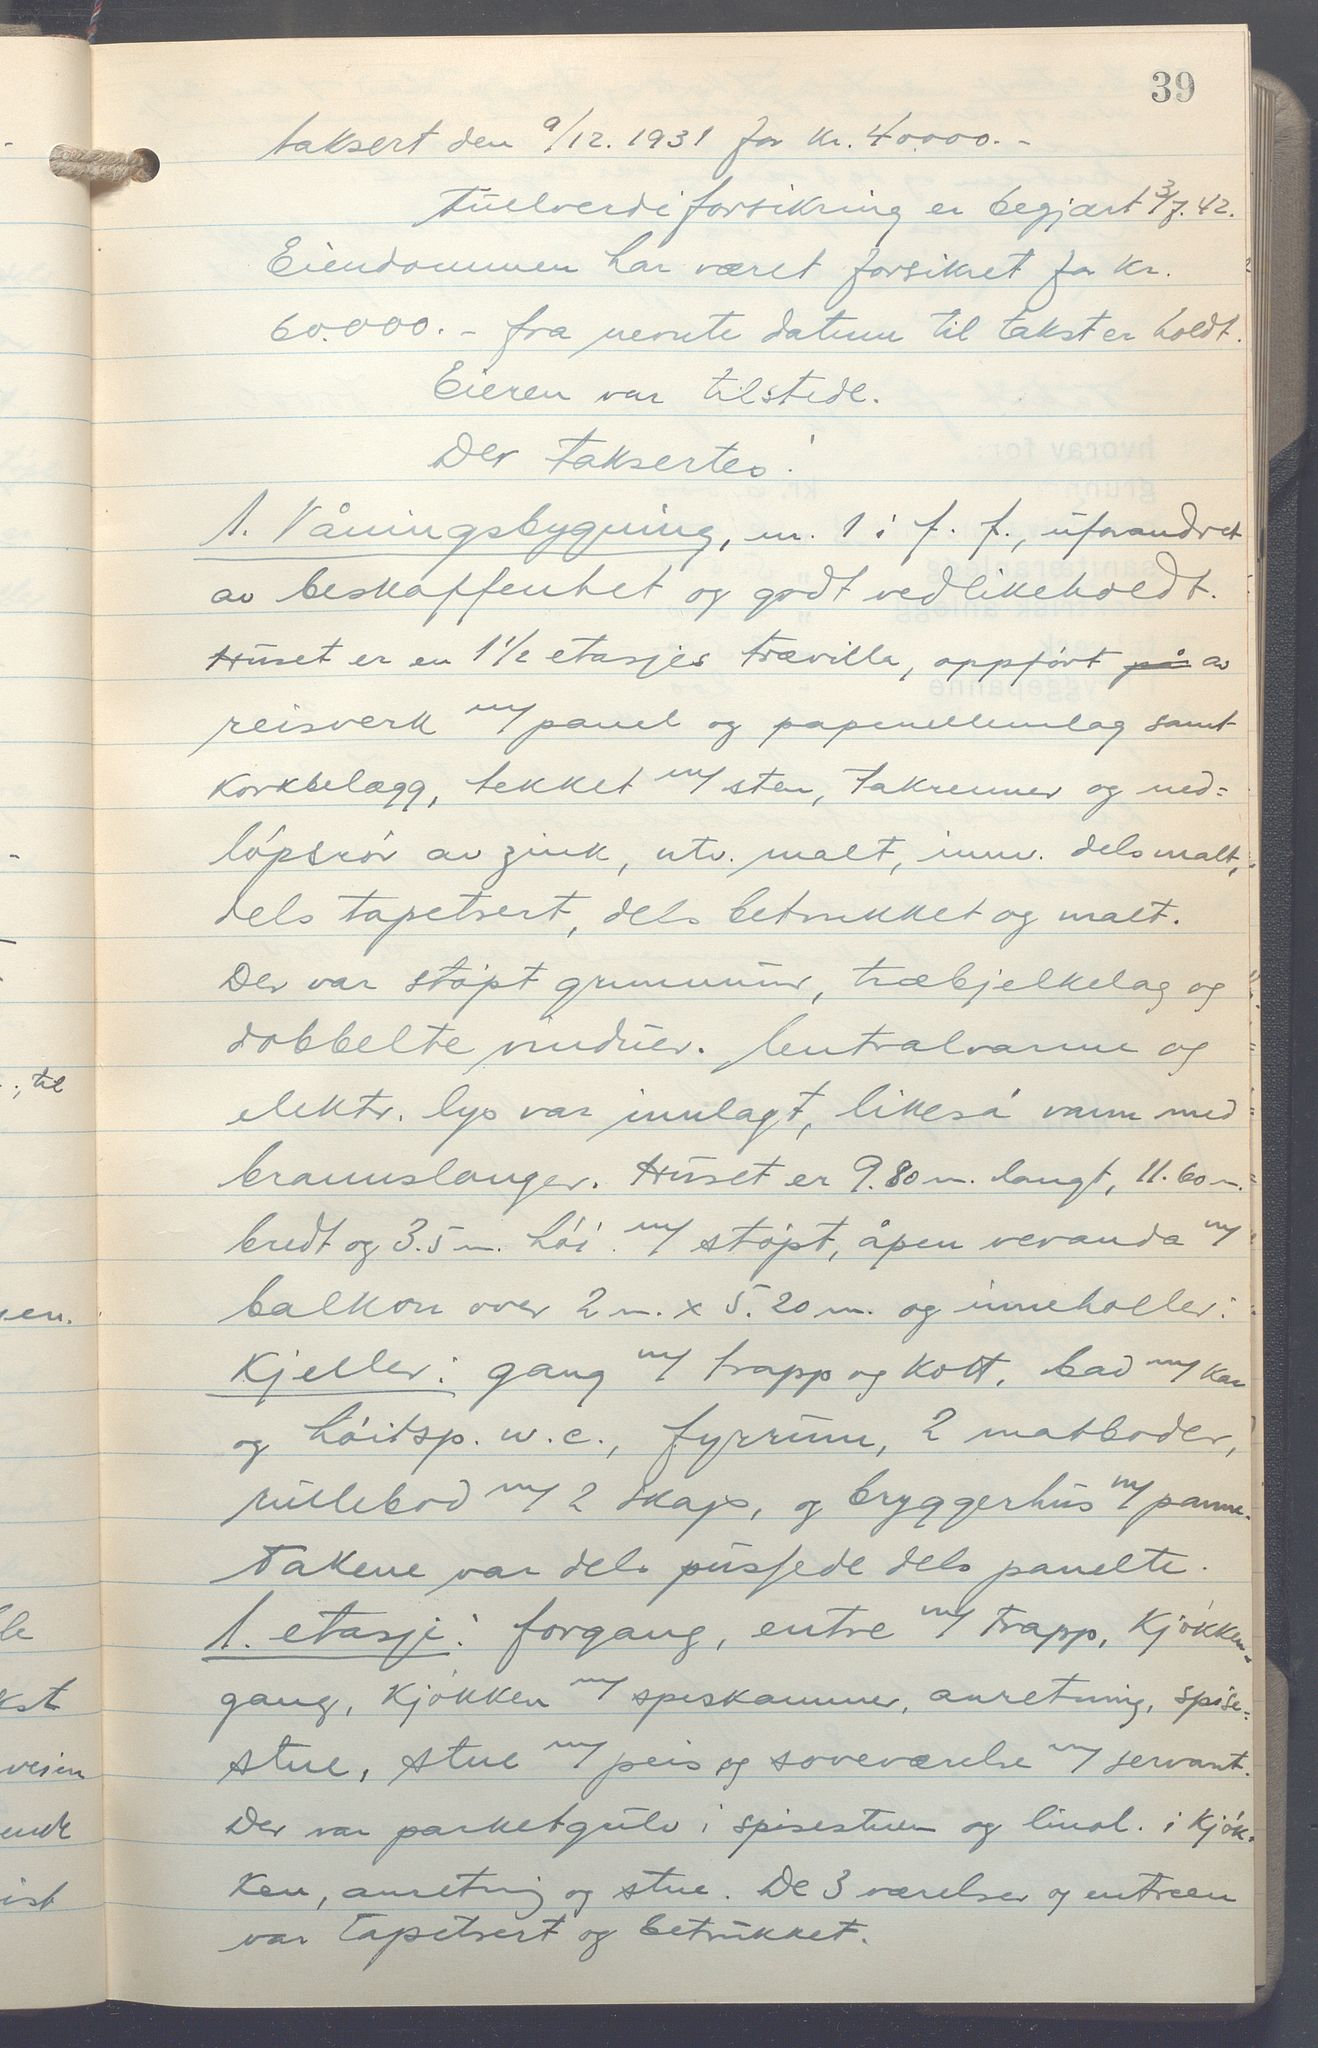 39
taksert den 9/12. 1931 for kr. 40000.-
Fullverdiforsikring er begjært 3/7. 42.
Eiendommen har været forsikret for kr.
60.000.- fra nevnte datum til takst er holdt.
Eieren var tilstede.
Der taksertes:
1. Våningsbygning, nr. 1 i f. f., uforandret
av beskaffenhet og godt vedlikeholdt.
Huset er en 1 1/2 etasjes trævilla, oppført på av
reisverk m/ panel og papmellemlag samt
korkbelægg, tekket m/ sten, takrenner og ned=
løpsrør av zink, utv. malt, innv. dels malt,
dels tapetsert, dels betrukket og malt.
Der var støpt grunnmur, træbjelkelag og
dobbelte vinduer. Centralvarme og
elektr. lys var innlagt, likeså vann med
brannslanger. Huset er 9.80 m. langt, 11.60 m.
bredt og 3.5 m. høi. m/ støpt, åpen veranda m/
balkon over 2 m. x 5.20 m. og inneholler:
Kjeller: gang m/ trapp og kott, bad m/ kar
og høitsp. w.c., fyrrum, 2 matboder,
rullebod m/ 2 skap, og bryggerhus m/ panne.
Takene var dels pussede dels panelte.
1. etasje: forgang, entre m/ trapp, kjøkken-
gang, kjøkken m/ spiskammer, anretning, spise=
stue, stue m/ peis og soveværelse m/ servant.
Der var parketgulv i spisestuen og linol. i kjøk-
ken, anretning og stue. De 3 værelser og entreen
var tapetsert og betrukket.